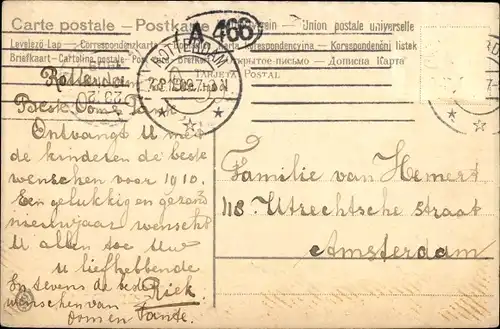 Carte postale – Postkarte Union postale universelle
A 466
Levelező-Lap – Correspondenzkarte Korespondencyjna – Korespondenční lístek
Briefkaart – Cartolina postale Открытое письмо – Дописна Карта
TARJETA POSTAL
ROTTERDAM
Rotterdam
Beste Oom & Tante
Ontvangt U met
de kinderen de beste
wenschen voor 1910.
Een gelukkig en gezond
nieuwjaar wenscht
U allen toe Uw
u liefhebbende
Riek
En tevens de beste
wenschen van
Oom en Tante.
Familie van Hemert
118 Utrechtsche straat
Amsterdam